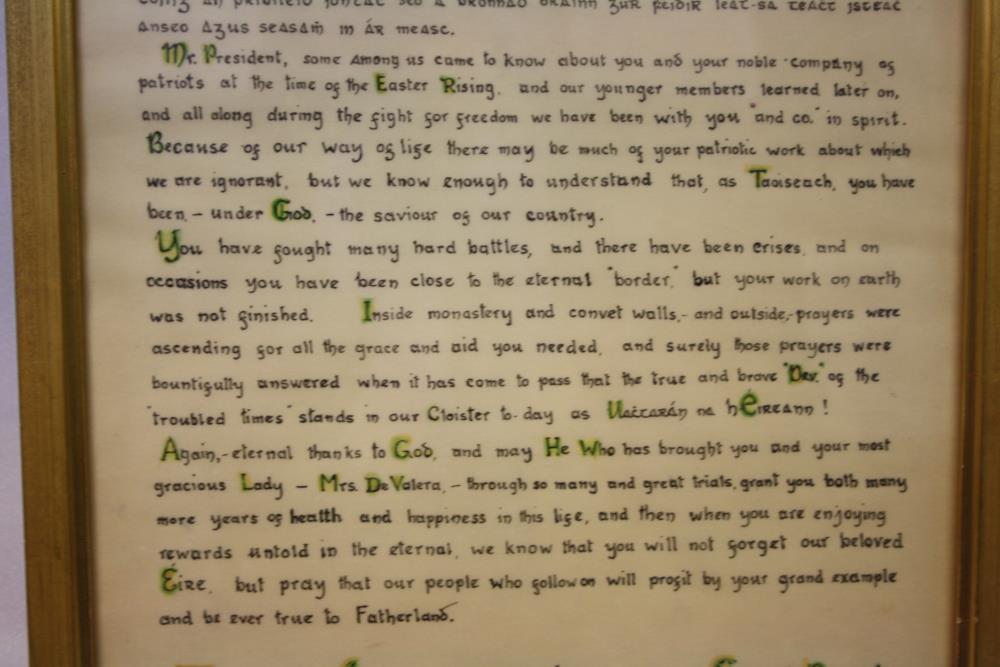 anseo agus seasaṁ in ár measc.
Mr. President, some among us came to know about you and your noble company of
patriots at the time of the Easter Rising, and our younger members learned later on,
and all along during the fight for freedom we have been with you "and co." in spirit.
Because of our way of life there may be much of your patriotic work about which
we are ignorant, but we know enough to understand that, as Taoiseach, you have
been, - under God, - the saviour of our country.
You have fought many hard battles, and there have been crises, and on
occasions you have been close to the eternal "border," but your work on earth
was not finished. Inside monastery and convet walls,- and outside,- prayers were
ascending for all the grace and aid you needed, and surely those prayers were
bountifully answered when it has come to pass that the true and brave "Dev." of the
"troubled times" stands in our Cloister to-day as Uaċtarán na hÉireann!
Again,- eternal thanks to God, and may He Who has brought you and your most
gracious Lady - Mrs. De Valera, - through so many and great trials, grant you both many
more years of health and happiness in this life, and then when you are enjoying
rewards untold in the eternal, we know that you will not forget our beloved
Éire, but pray that our people who follow on will profit by your grand example
and be ever true to Fatherland.